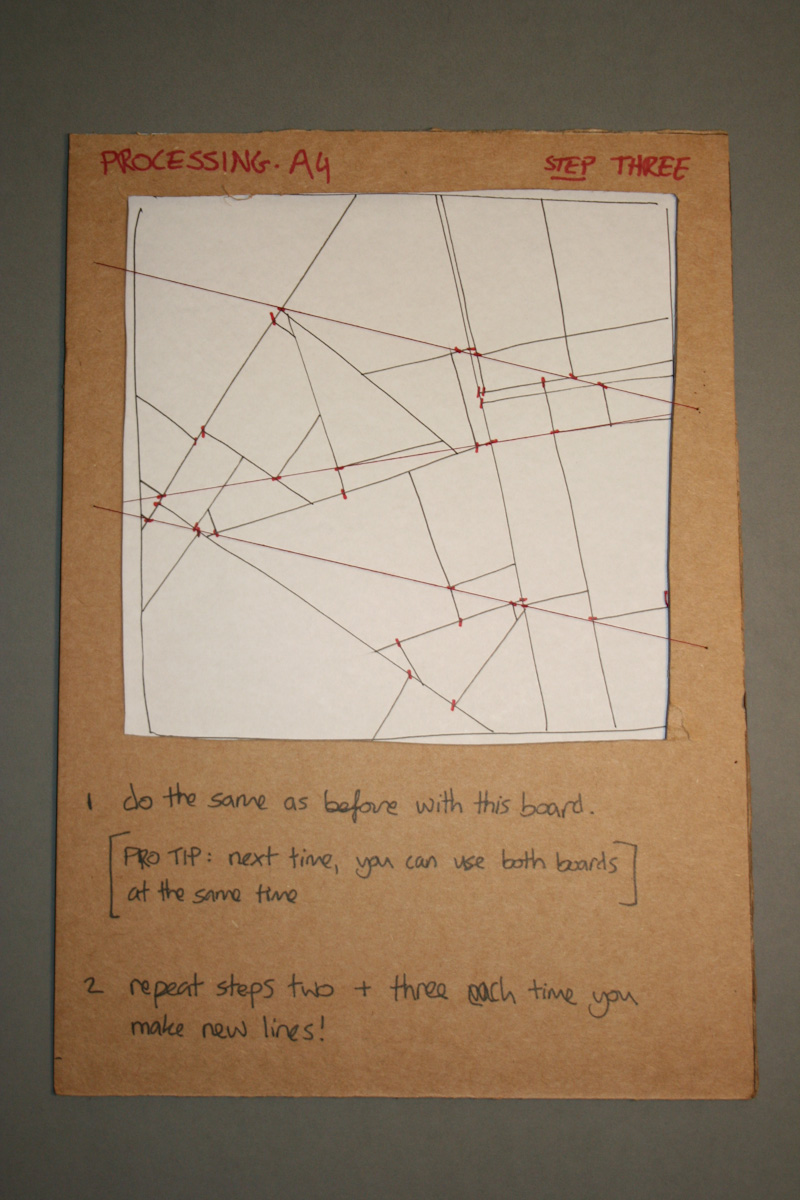 PROCESSING. A4
STEP THREE
1 do the same as before with this board.
[PRO TIP: next time, you can use both boards
at the same time]
2 repeat steps two + three each time you
make new lines!